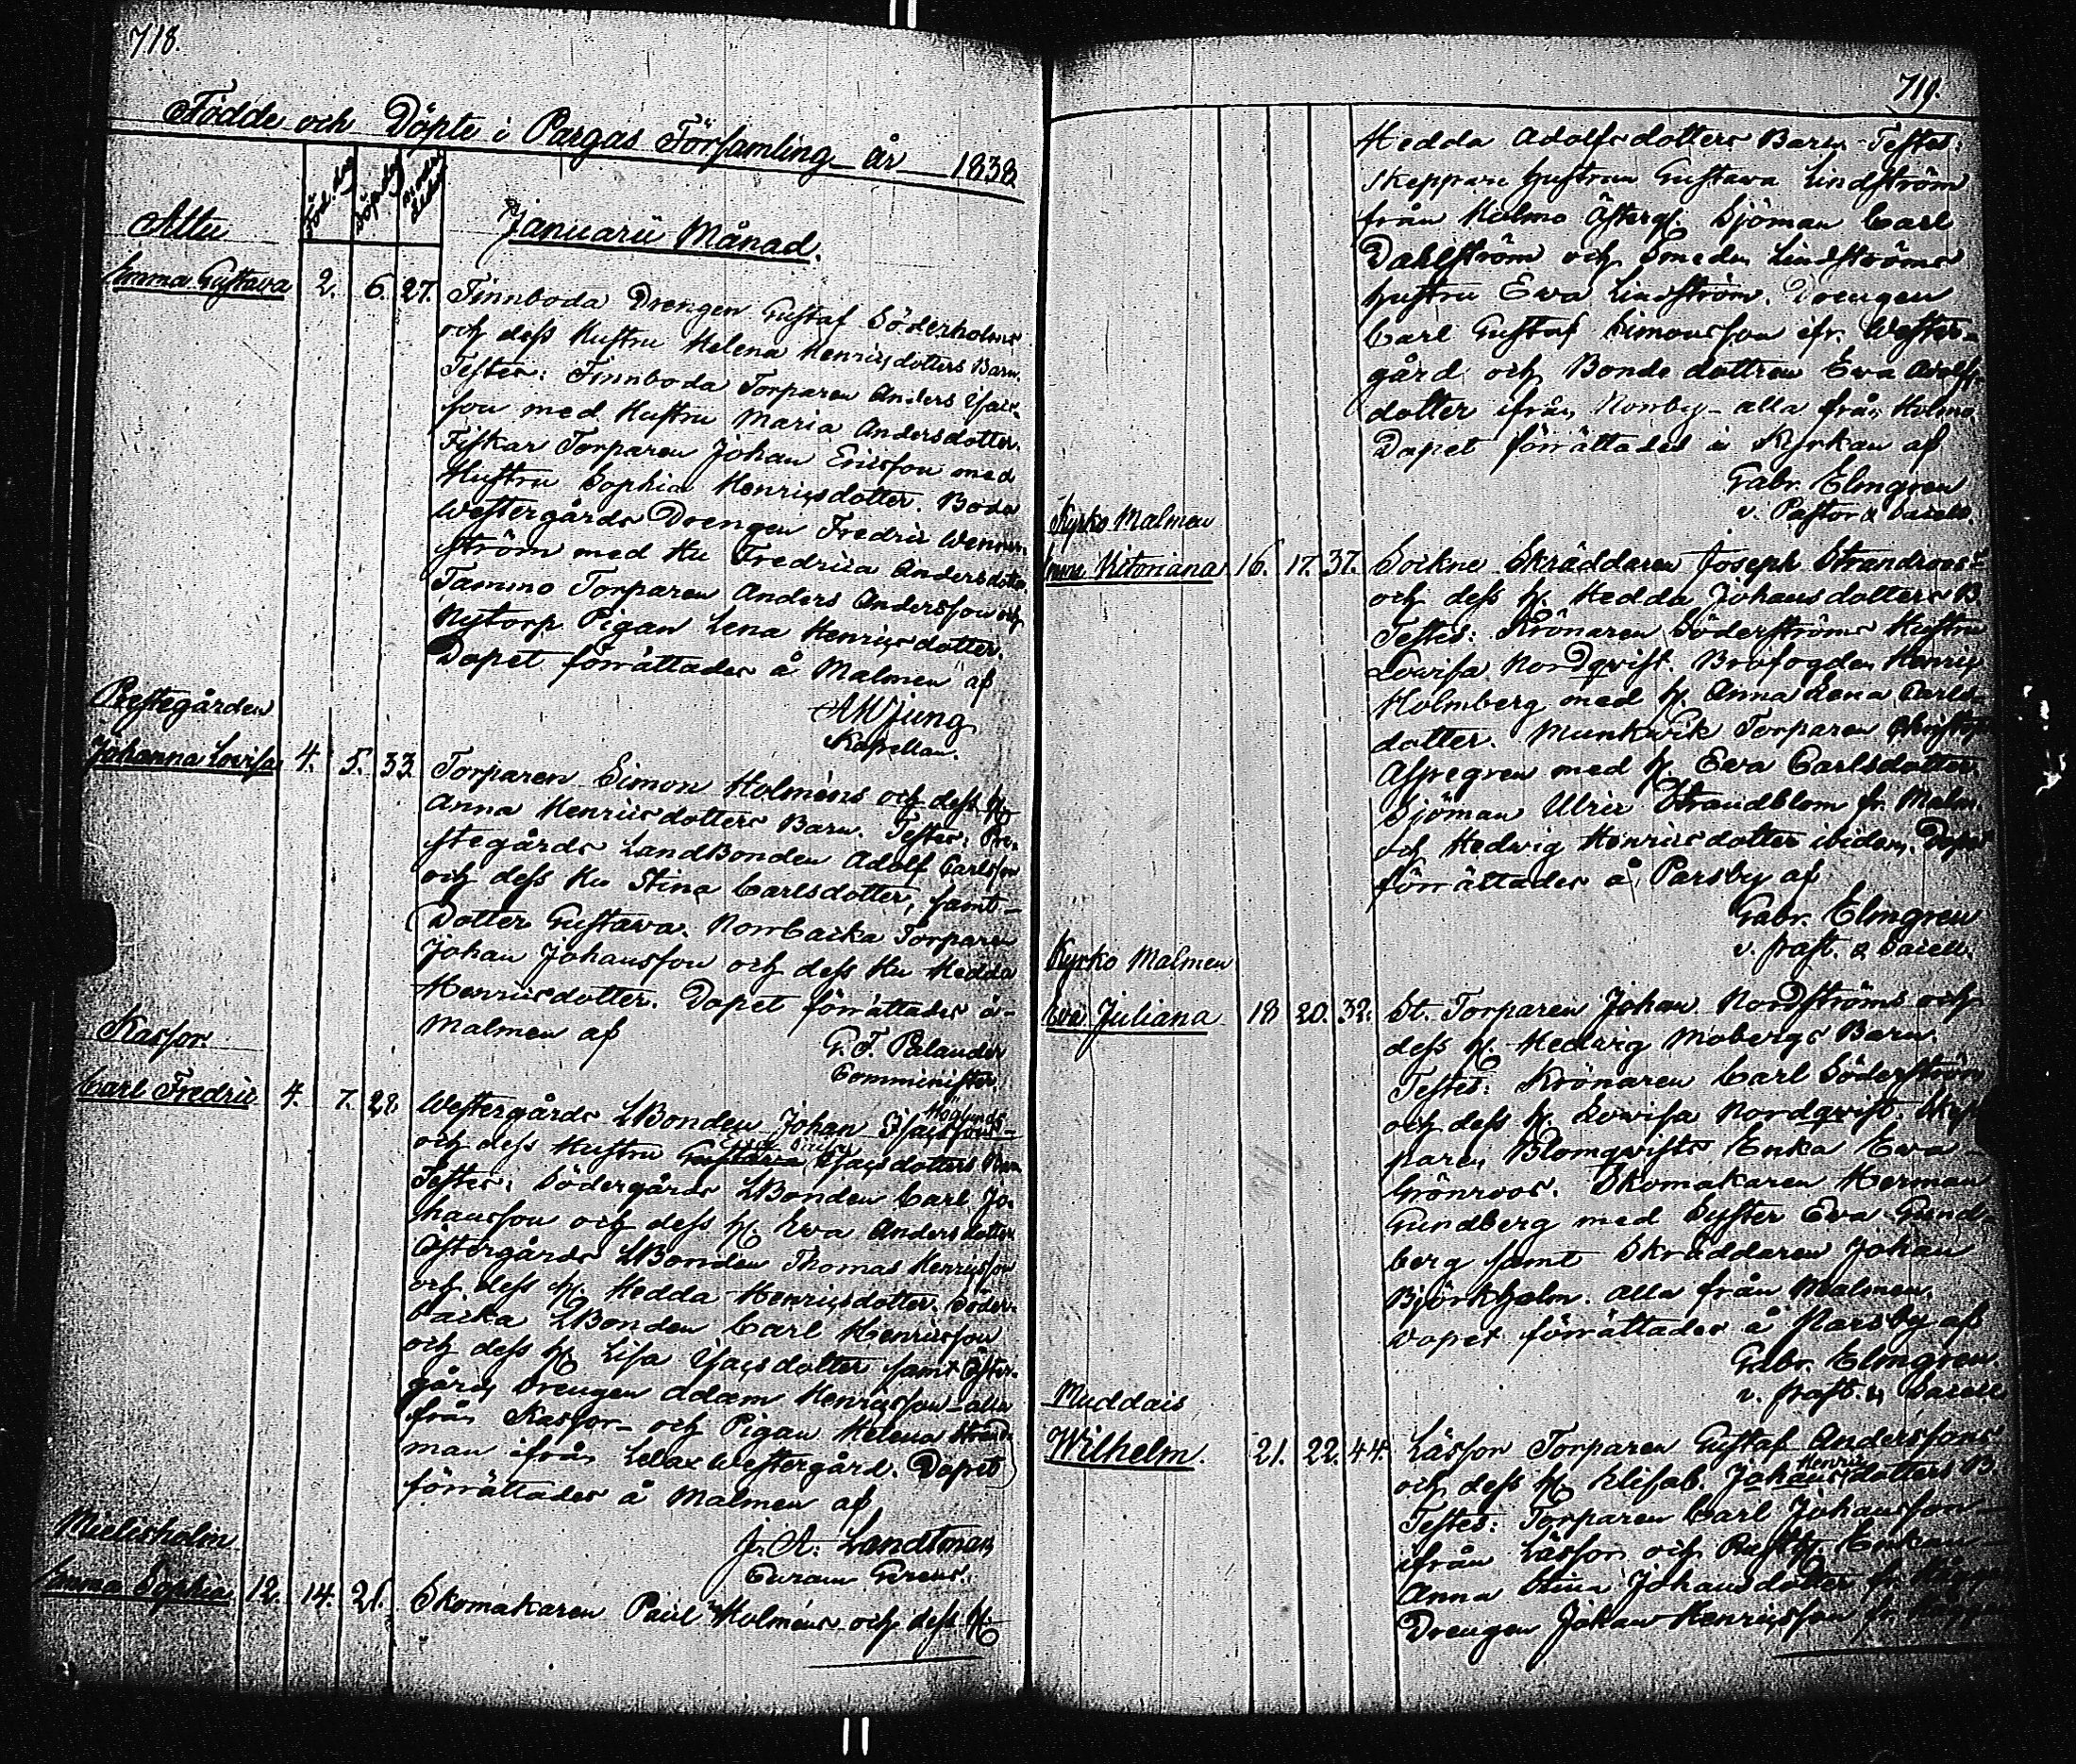 718.
Födde och Döpte i Pargas Församling år 1838
Föd. dag Döpe dag
Januarii Månad.
Attu
Emma Gustava 2. 6. 27. Finnboda Drengen Gustaf Söderholms
och dess Hustru Helena Henricsdotters Barn.
Testes: Finnboda Torparen Anders Isacs-
son med Hustru Maria Andersdotter.
Fiskar Torparen Johan Ericsson med
Hustru Sophia Henricsdotter. Boda
Westergårds Drengen Fredric Wenner-
ström med Hu Fredrica Andersdotter
Tammo Torparen Anders Andersson och
Nytorp Pigan Lena Henricsdotter.
Dopet förrättades å Malmen af
AWjung
Kapellan.
Prestegården
Johanna Lovisa 4. 5. 33. Torparen Simon Holméns och dess H.
Anna Henricsdotters Barn. Testes: Pre-
stegårds LandBonden Adolf Carlsson
och dess Hu Stina Carlsdotter, samt
Dotter Gustava. Norrbacka Torparen
Johan Johansson och dess Hu Hedda
Henricsdotter. Dopet förrättades å
Malmen af
G. F. Palander
Comminister
Kassor
Carl Fredric 4. 7. 28. Westergårds LBonden Johan Isacssons Höglunds
och dess Hustru Gustava Isacsdotters Barn
Testes: Södergårds LBonden Carl Jo-
hansson och dess H. Eva Andersdotter
Östergårds LBonden Thomas Henricsson
och dess H. Hedda Henricsdotter. Söder-
backa LBonden Carl Henricsson
och dess H. Lisa Isacsdotter samt Öster-
gårds Drengen Adam Henricsson alla
från Kassor och Pigan Helena Strand-
man ifrån Lelax Westergård. Dopet
förrättades å Malmen af
J. A. Landtman
Curam Gerens.
Mielisholm
Emma Sophia 12. 14. 21. Skomakaren Paul Holméns och dess H.
719.
Hedda Adolfsdotters Barn. Testes:
Skeppare hustrun Gustava Lindström
från Holmo Österg. Sjöman Carl
Dahlström och Smeden Lindströms
hustru Eva Lindström. Drengen
Carl Gustaf Simonsson ifr. Wester-
gård och Bonde dottren Eva Adolfs-
dotter ifrån Norrby alla från Holmo
Dopet förrättades i Kyrkan af
Gabr. Elmgren
v. Pastor & Sacell.
Kyrko Malmen
Emma Victoriana 16. 17. 37. Sockne Skräddaren Joseph Strandroos's
och dess H. Hedda Johansdotters B.
Testes: Krönaren Söderströms Hustru
Lovisa Nordqvist. Brofogden Henric
Holmberg med H. Anna Lena Carls-
dotter. Munkwik Torparen
Aspegren med H. Eva Carlsdotter
Sjöman Ulric Strandblom fr. Malm
och Hedwig Henricsdotter ibidem. Dopet
förrättades å Parsby af
Gabr. Elmgren
v. past. & Sacell.
Kyrko Malmen
Eva Juliana 18 20. 32. St. Torparen Johan Nordströms och
dess H. Hedwig Mobergs Barn.
Testes: Krönaren Carl Söderström
och dess H. Lovisa Nordqvist. Skep-
paren Blomqvists Enka Eva
Grönroos. Skomakaren Herman
Gundberg med Syster Eva Gund-
berg samt Skräddaren Johan
Björkholm. alla från Malmen.
Dopet förrättades å Parsby af
Gabr. Elmgren
v. past. & Sacell.
Muddais
Wilhelm. 21. 22. 44. Lässor Torparen Gustaf Anderssons
och dess H. Elisab. Johans Henrics dotters B.
Testes: Torparen Carl Johansson
ifrån Lässor och Enkan
Anna Stina Johansdotter fr.
Drengen Johan Henricsson fr.